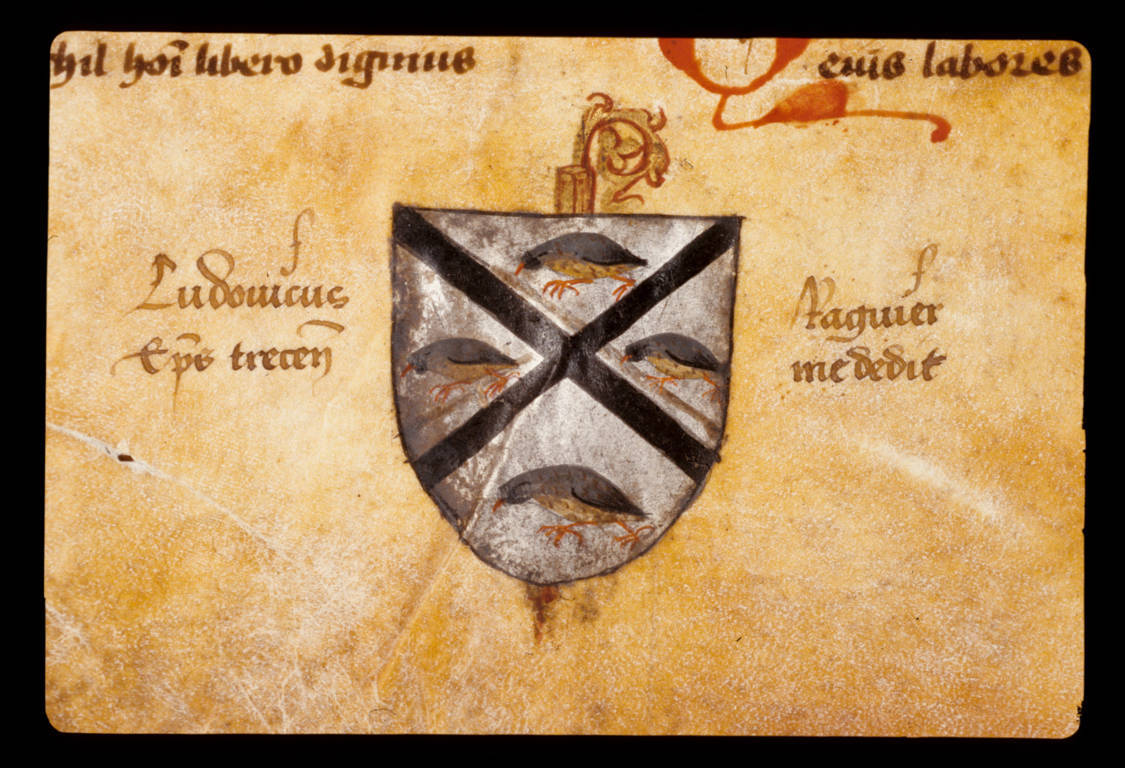 hil hoī libero dignius
euis labores
Ludouicus
Ep̄s trecen̄
Raguier
me dedit